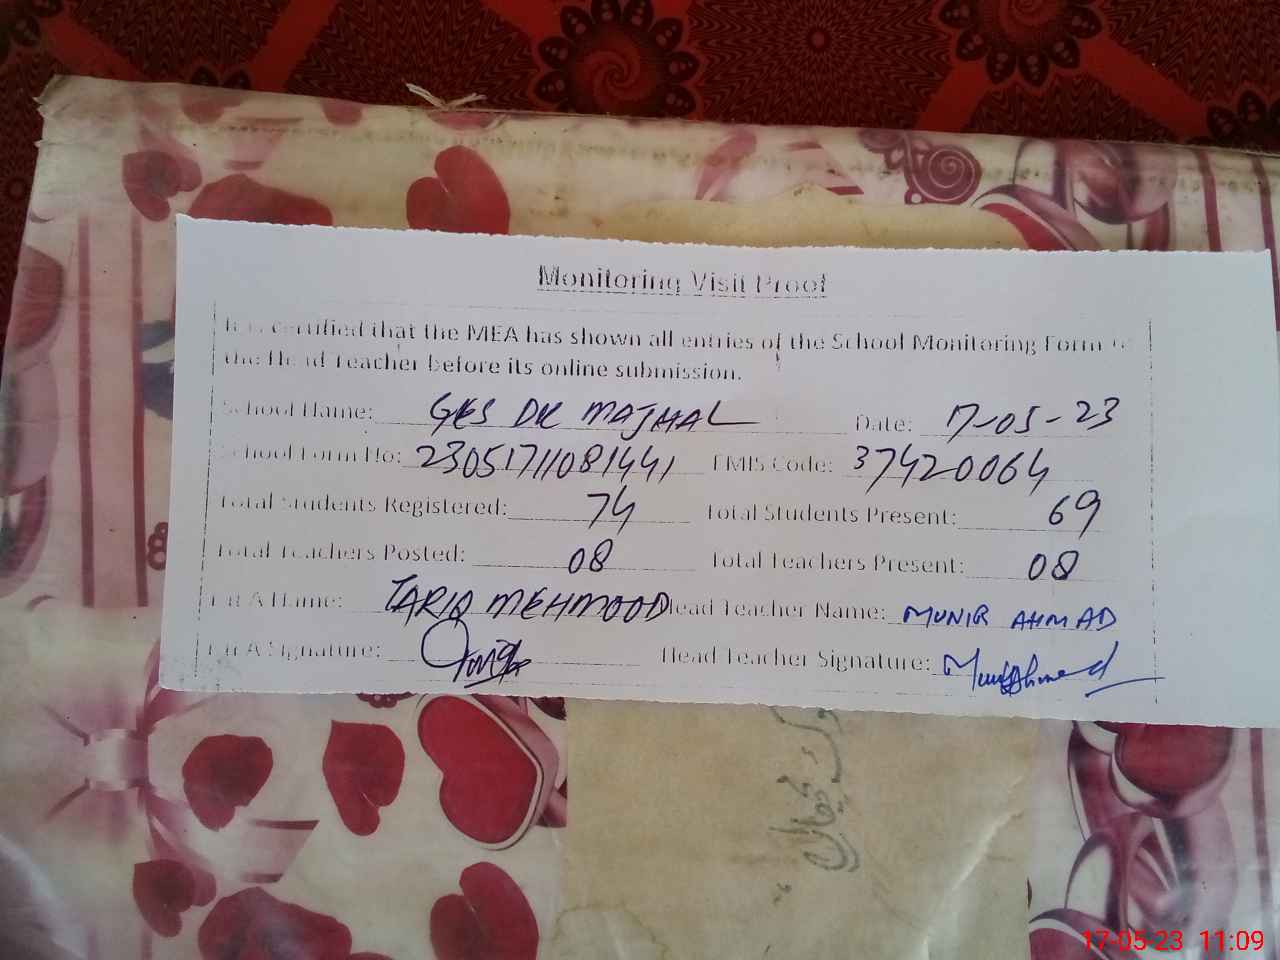 Monitoring Visit Proof
It is certified that the MEA has shown all entries of the School Monitoring Form to
the Head Teacher before its online submission.
School Name: GES DK MAJHAL Date: 17-05-23
School Form No: 23051711081441 EMIS Code: 37420064
Total Students Registered: 74 Total Students Present: 69
Total Teachers Posted: 08 Total Teachers Present: 08
MEA Name: TARIQ MEHMOOD Head Teacher Name: MUNIR AHMAD
MEA Signature: Head Teacher Signature:
17-05-23 11:09